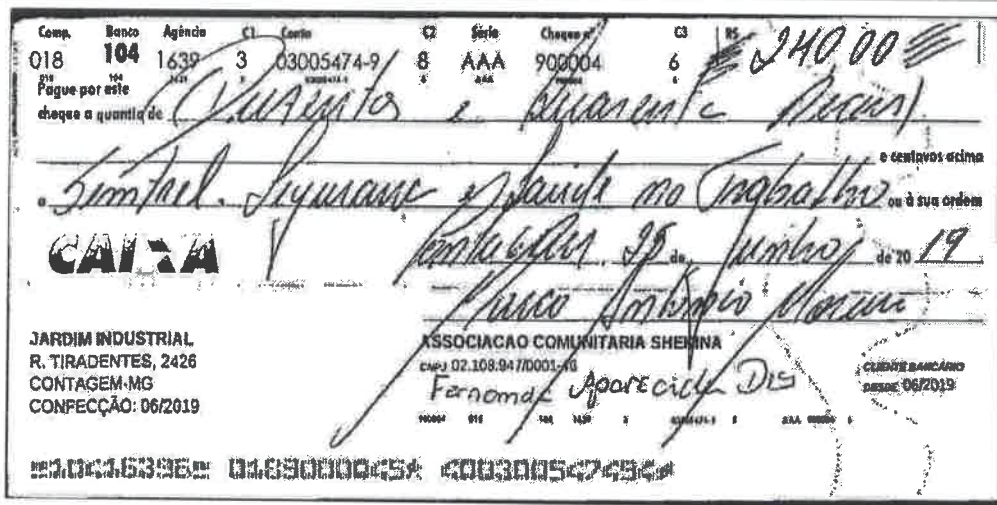 Comp. Banco Agência C1 Conta C2 Série Cheque nº C3 R$
018 104 1639 3 03005474-9 8 AAA 900004 6 240,00
Pague por este
cheque a quantia de Duzentos e quarenta Reais
e centavos acima
a Simtrel. Segurança e Saúde no Trabalho ou à sua ordem
CAIXA
Contagem, 25 de Junho de 20 19
Marco Antonio
JARDIM INDUSTRIAL
R. TIRADENTES, 2426
CONTAGEM-MG
CONFECÇÃO: 06/2019
ASSOCIACAO COMUNITARIA SHEKINA
CNPJ 02.108.947/0001-
Fernanda Aparecida
CLIENTE BANCÁRIO
DESDE 06/2019